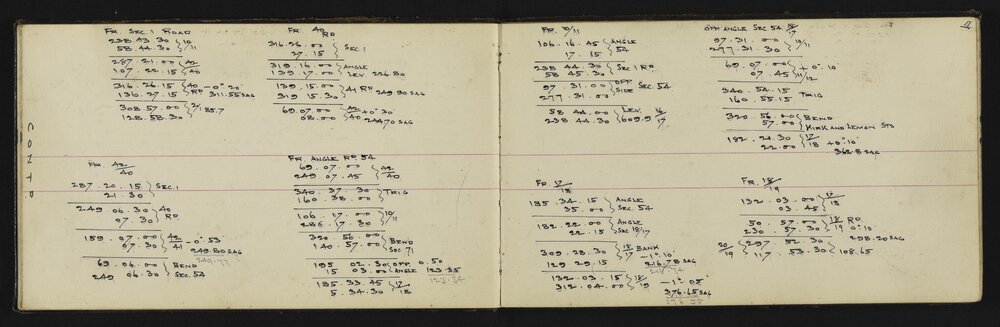 CONTD.
FR. SEC. 1 ROAD
238.43.30 } 10/11
58.44.30
287.21.00 } 42/40
107.22.15
316.26.15 } 40 RD -0° 20'
136.27.15 311.55 SAG
308.57.00 } 185.7
128.58.30
FR 42/40
287.20.15 } SEC.1
21.30
249.06.30 } 40 RD
07.30
159.07.00 } 42/41 -0° 53
07.30 249.80 SAG
69.06.00 } BEND
249 06.30 SEC. 54
FR 40 RD
316.26.00 } SEC.1
27.15
319.16.00 } ANGLE
139.17.00 LEV. 226.80
139.15.00 } 41 RD
319.15.30 249.90 SAG
69.07.00 } 42/40 +0° 30
08.00 244.70 SAG
FR. ANGLE RD 54
69.07.00 } 42/40
249 07.45
340.37.30 } TRIG
160.38.00
106.17.00 } 10/11
286.17.30
320 56.00 } BEND
140.57.00 SEC 71
195 02.30 } OFF 0.50
15 03.00 ANGLE 123.35
185.33.45 } 17/18
5.34.30
FR. 10/11
106.16.45 } ANGLE
17.15 54
238 44.30 } SEC 1 RD
58 45.30
97.31.00 } OFF SIDE SEC. 54
277.31.00
58 44.00 } LEV. 16/17
238 44.30 609.9
FR. 17/18
185.34.15 } ANGLE
35.00 SEC. 54
182.22.00 } ANGLE
22.15 SEC 18/17
309.28.30 } 18/17 BANK
129 29.15 -1° 10
216.78 SAG
132.03.15 } 18/19 -1° 05'
312.04.00 376.65 SAG
11
OFF ANGLE SEC 54 16/17
97.31.00
277.31.30
69.07.00 } +0° 10'
07.45 11/12
340.54.15 } TRIG
160.55.15
320.56.00 } BEND
57.00 KIRK AND LEMON STS
182.21.30 } 17/18 +0° 10'
22.00 362.8 SAG
FR. 18/19
132.03.00 } 17/18
03.45
50.57.00 } 18/19 RD
230.57.30 0° 10'
298.20 SAG
20/19 { 297 52.30 } 108.65
117.53.30